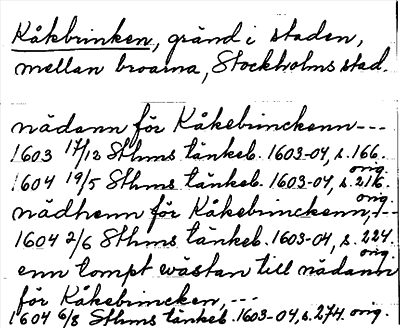 Kåkbrinken, gränd i staden,
mellan broarna, Stockholms stad.
nädann för Kåkebrinckenn---
1603 17/12 Sthms tänkeb. 1603-04, s. 166.
orig.
1604 19/5 Sthms tänkeb. 1603-04, s. 216.
orig.
nädhenn för Kåkebrinckenn, ---
1604 2/6 Sthms tänkeb. 1603-04, s. 224.
orig.
enn tompt wästan till nädann
för Kåkebrincken, ---
1604 6/8 Sthms tänkeb. 1603-04, s. 274. orig.